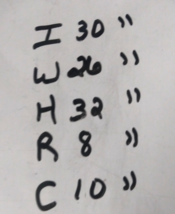 I 30 "
W 26 "
H 32 "
R 8 "
C 10 "